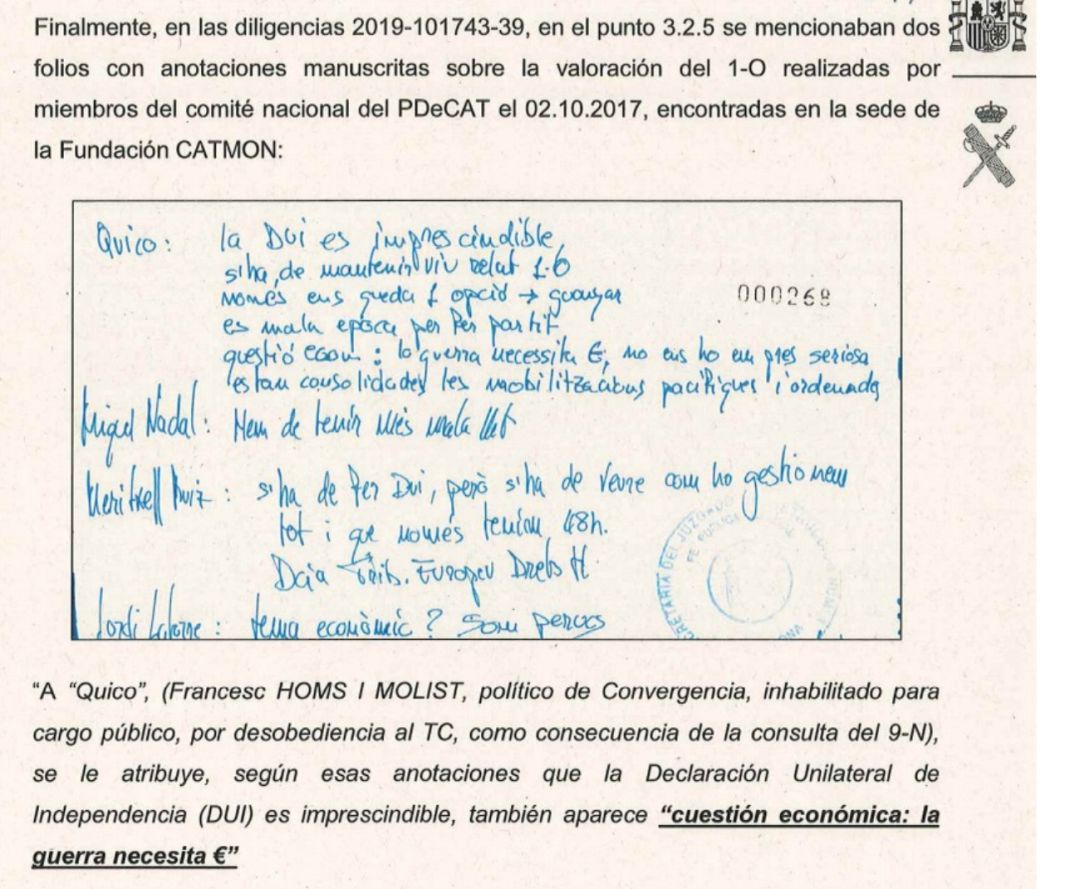 Finalmente, en las diligencias 2019-101743-39, en el punto 3.2.5 se mencionaban dos
folios con anotaciones manuscritas sobre la valoración del 1-O realizadas por
miembros del comité nacional del PDeCAT el 02.10.2017, encontradas en la sede de
la Fundación CATMON:
Quico: la DUI es imprescindible,
s'ha de mantenir viu relat 1-O
Només ens queda 1 opció → guanyar
000268
es mala època per fer partit
qüestió econ: la guerra necessita €, no ens ho em pres seriosa
estan consolidades les mobilitzacions pacífiques i ordenada
Miquel Nadal: Hem de tenir més mala llet
Meritxell Ruiz: s'ha de fer Dui, però s'ha de veure com ho gestionem
tot i que només teniem 48h.
Trib. Europeu Drets H
Jordi : tema econòmic? Som
SECRETARIA DEL JUZGADO
FE PÚBLICA
“A “Quico”, (Francesc HOMS I MOLIST, político de Convergencia, inhabilitado para
cargo público, por desobediencia al TC, como consecuencia de la consulta del 9-N),
se le atribuye, según esas anotaciones que la Declaración Unilateral de
Independencia (DUI) es imprescindible, también aparece “cuestión económica: la
guerra necesita €”